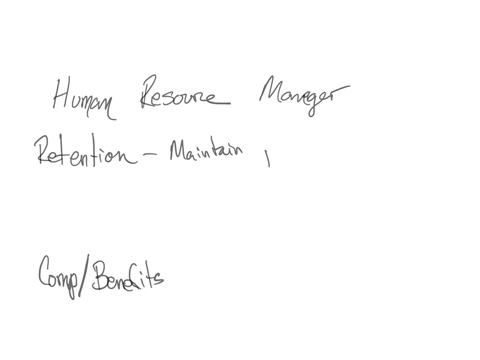 Human Resource Manager
Retention - Maintain
Comp/Benefits